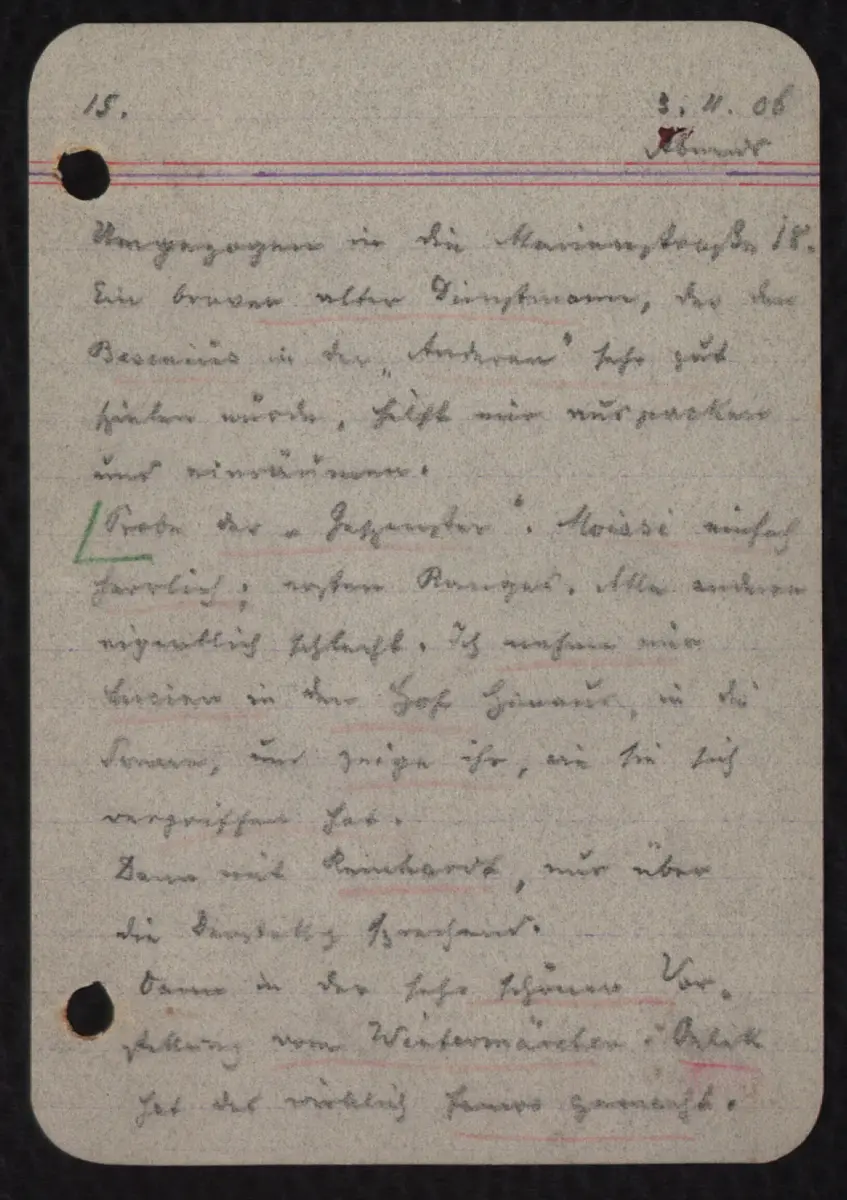 15.
3. 11. 06
Abends
Umgezogen in die Marienstraße 18.
Ein braver alter Dienstmann, der den
in der „Anderen“ sehr gut
spielen würde, hilft mir auspacken
und einräumen.
Probe der „Gespenster“. Moissi einfach
herrlich; ersten Ranges. Alle anderen
eigentlich schlecht. Ich nehme mir
in den Hof hinaus, in die
und zeige ihr, wie sie sich
vergriffen hat.
Dann mit Reinhardt, nur über
die sprechend.
Dann in der sehr schönen Vor-
stellung vom Wintermärchen. Orlik
hat das wirklich famos gemacht.